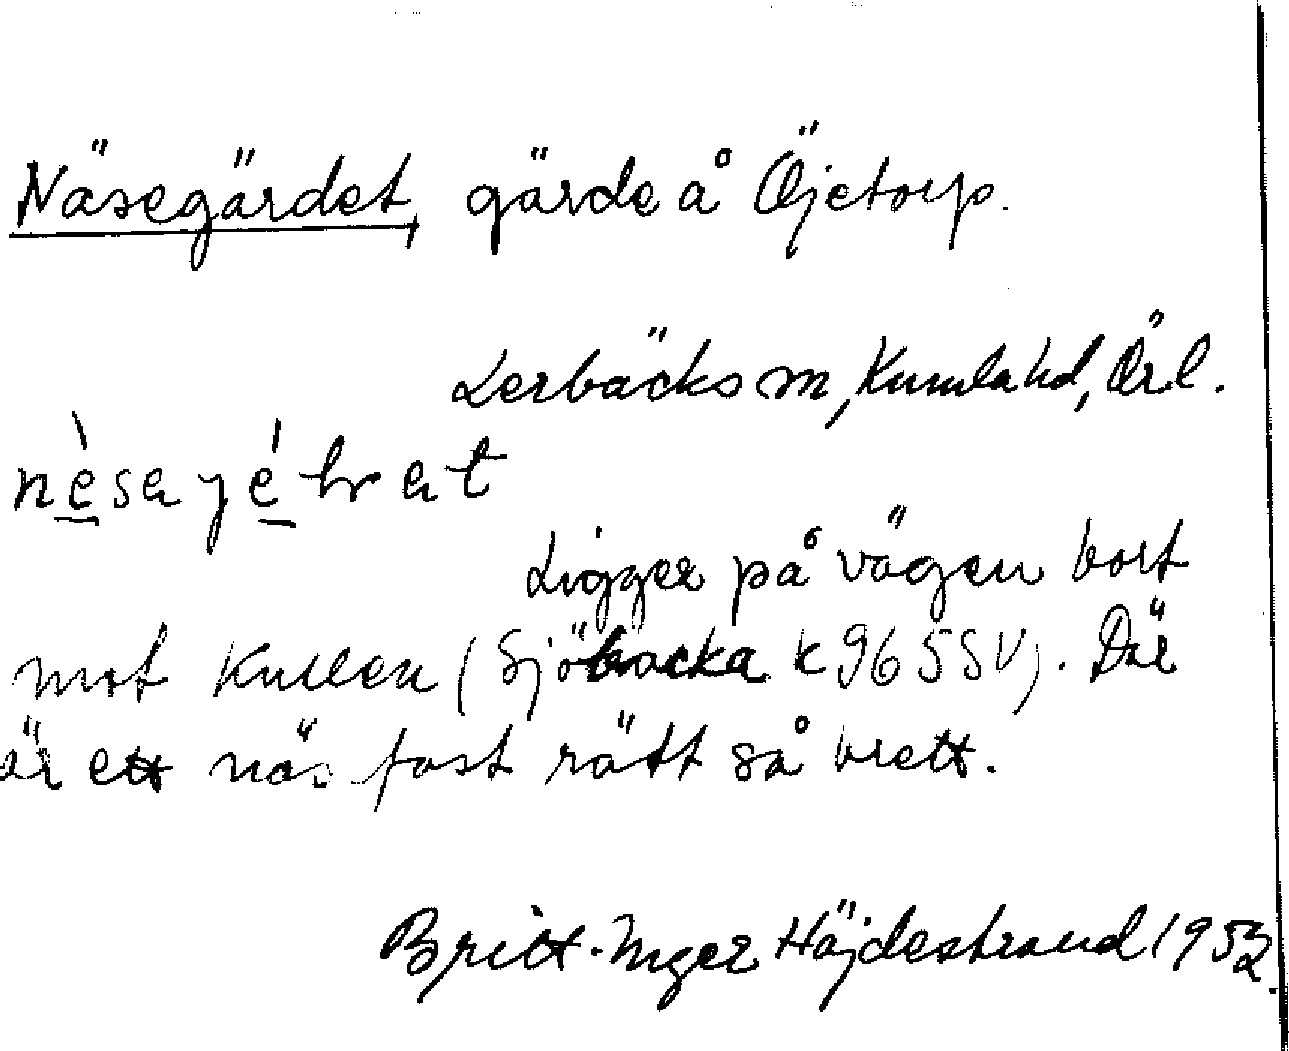 Näsegärdet, gärde å Öjetorp.
Lerbäcks sn, Kumla hd, Örl.
nèseyéhret
Ligger på vägen bort
mot Kullen (Sjöbacka k 965 SV). Där
är ett näs fast rätt så brett.
Britt-Inger Höjdestrand 1952.